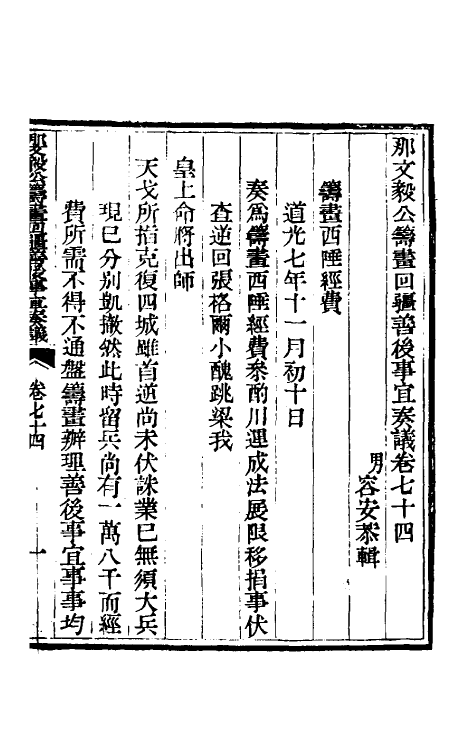 那文毅公籌畫回疆善後事宜奏議卷七十四
男容安恭輯
籌畫西陲經費
道光七年十一月初十日
奏爲籌畫西陲經費叅酌川運成法展限移捐事伏
查逆回張格爾小醜跳梁我
皇上命將出師
天戈所指克復四城雖首逆尚未伏誅業已無須大兵
現已分别凱撤然此時留兵尚有一萬八千而經
費所需不得不通盤籌畫辦理善後事宜事事均
那文毅公籌畫回疆善後事宜奏議
卷七十四
一